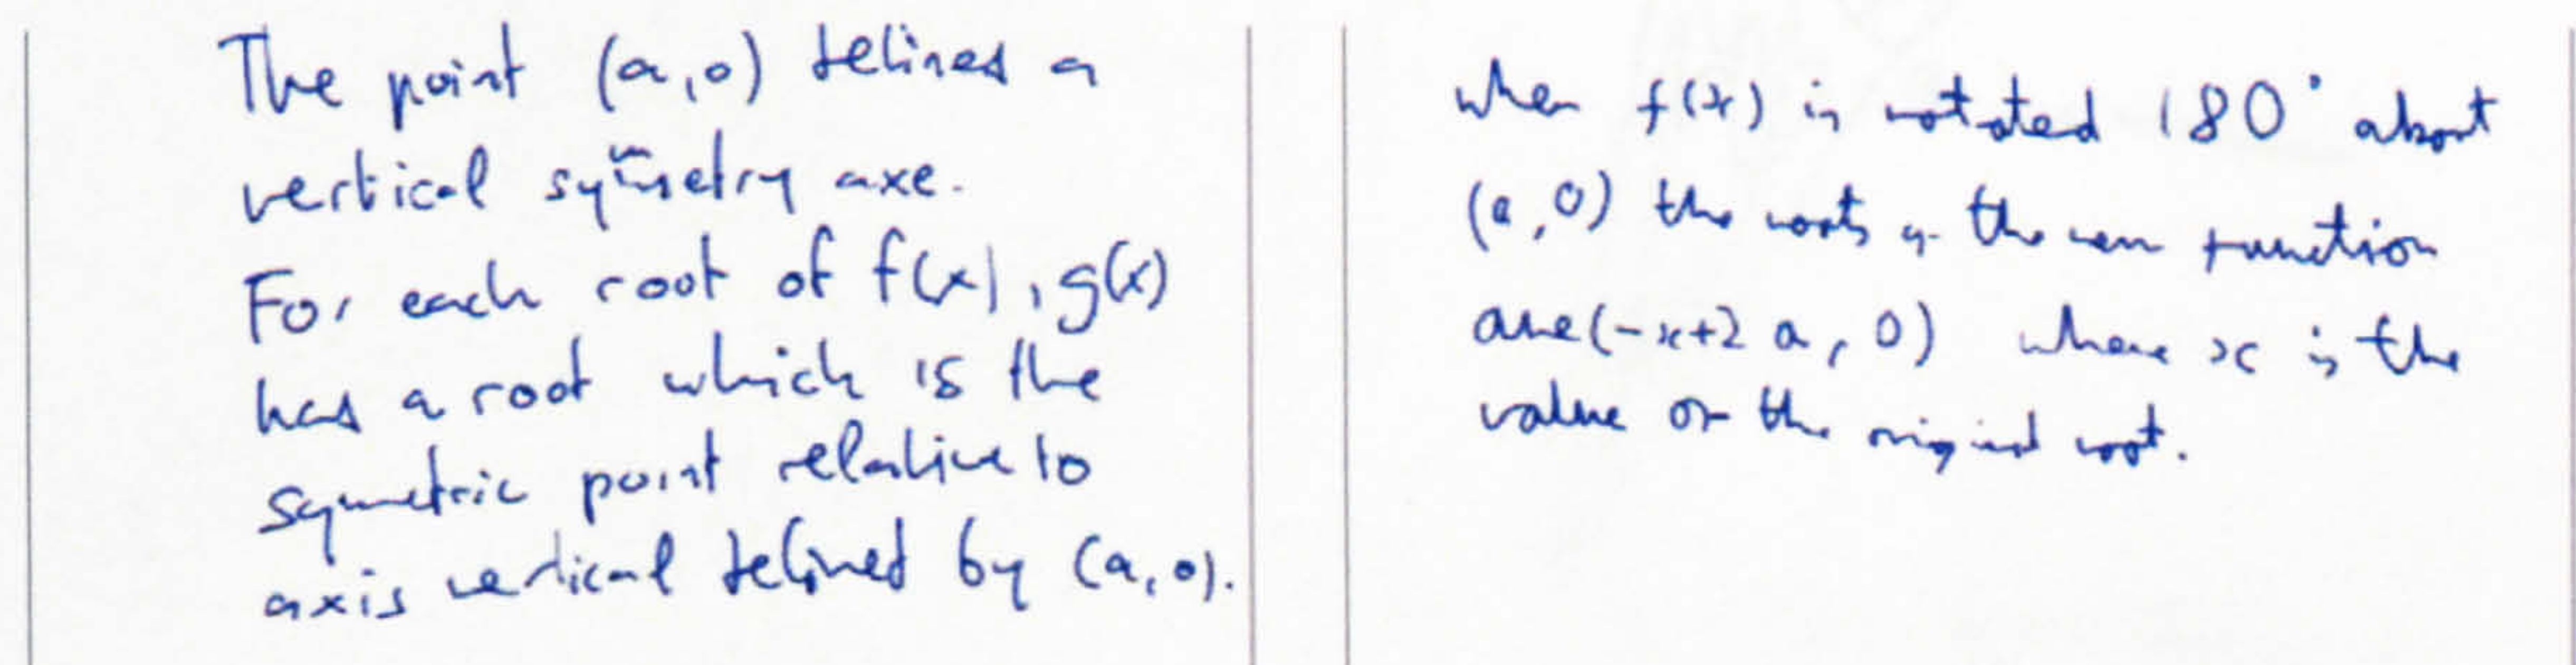 The point (a,0) defines a
vertical symmetry axe.
For each root of f(x), g(x)
has a root which is the
symetric point relative to
axis vertical defined by (a,0).
when f(x) is rotated 180° about
(a,0) the roots of the new function
are (-x+2a, 0) where x is the
value of the original root.